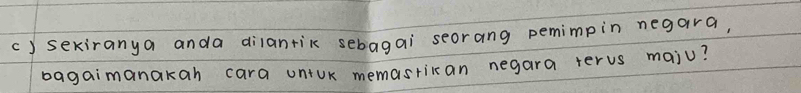 c) sekiranya anda dilantik sebagai seorang pemimpin negara,
bagaimanakah cara untuk memastikan negara terus maju?